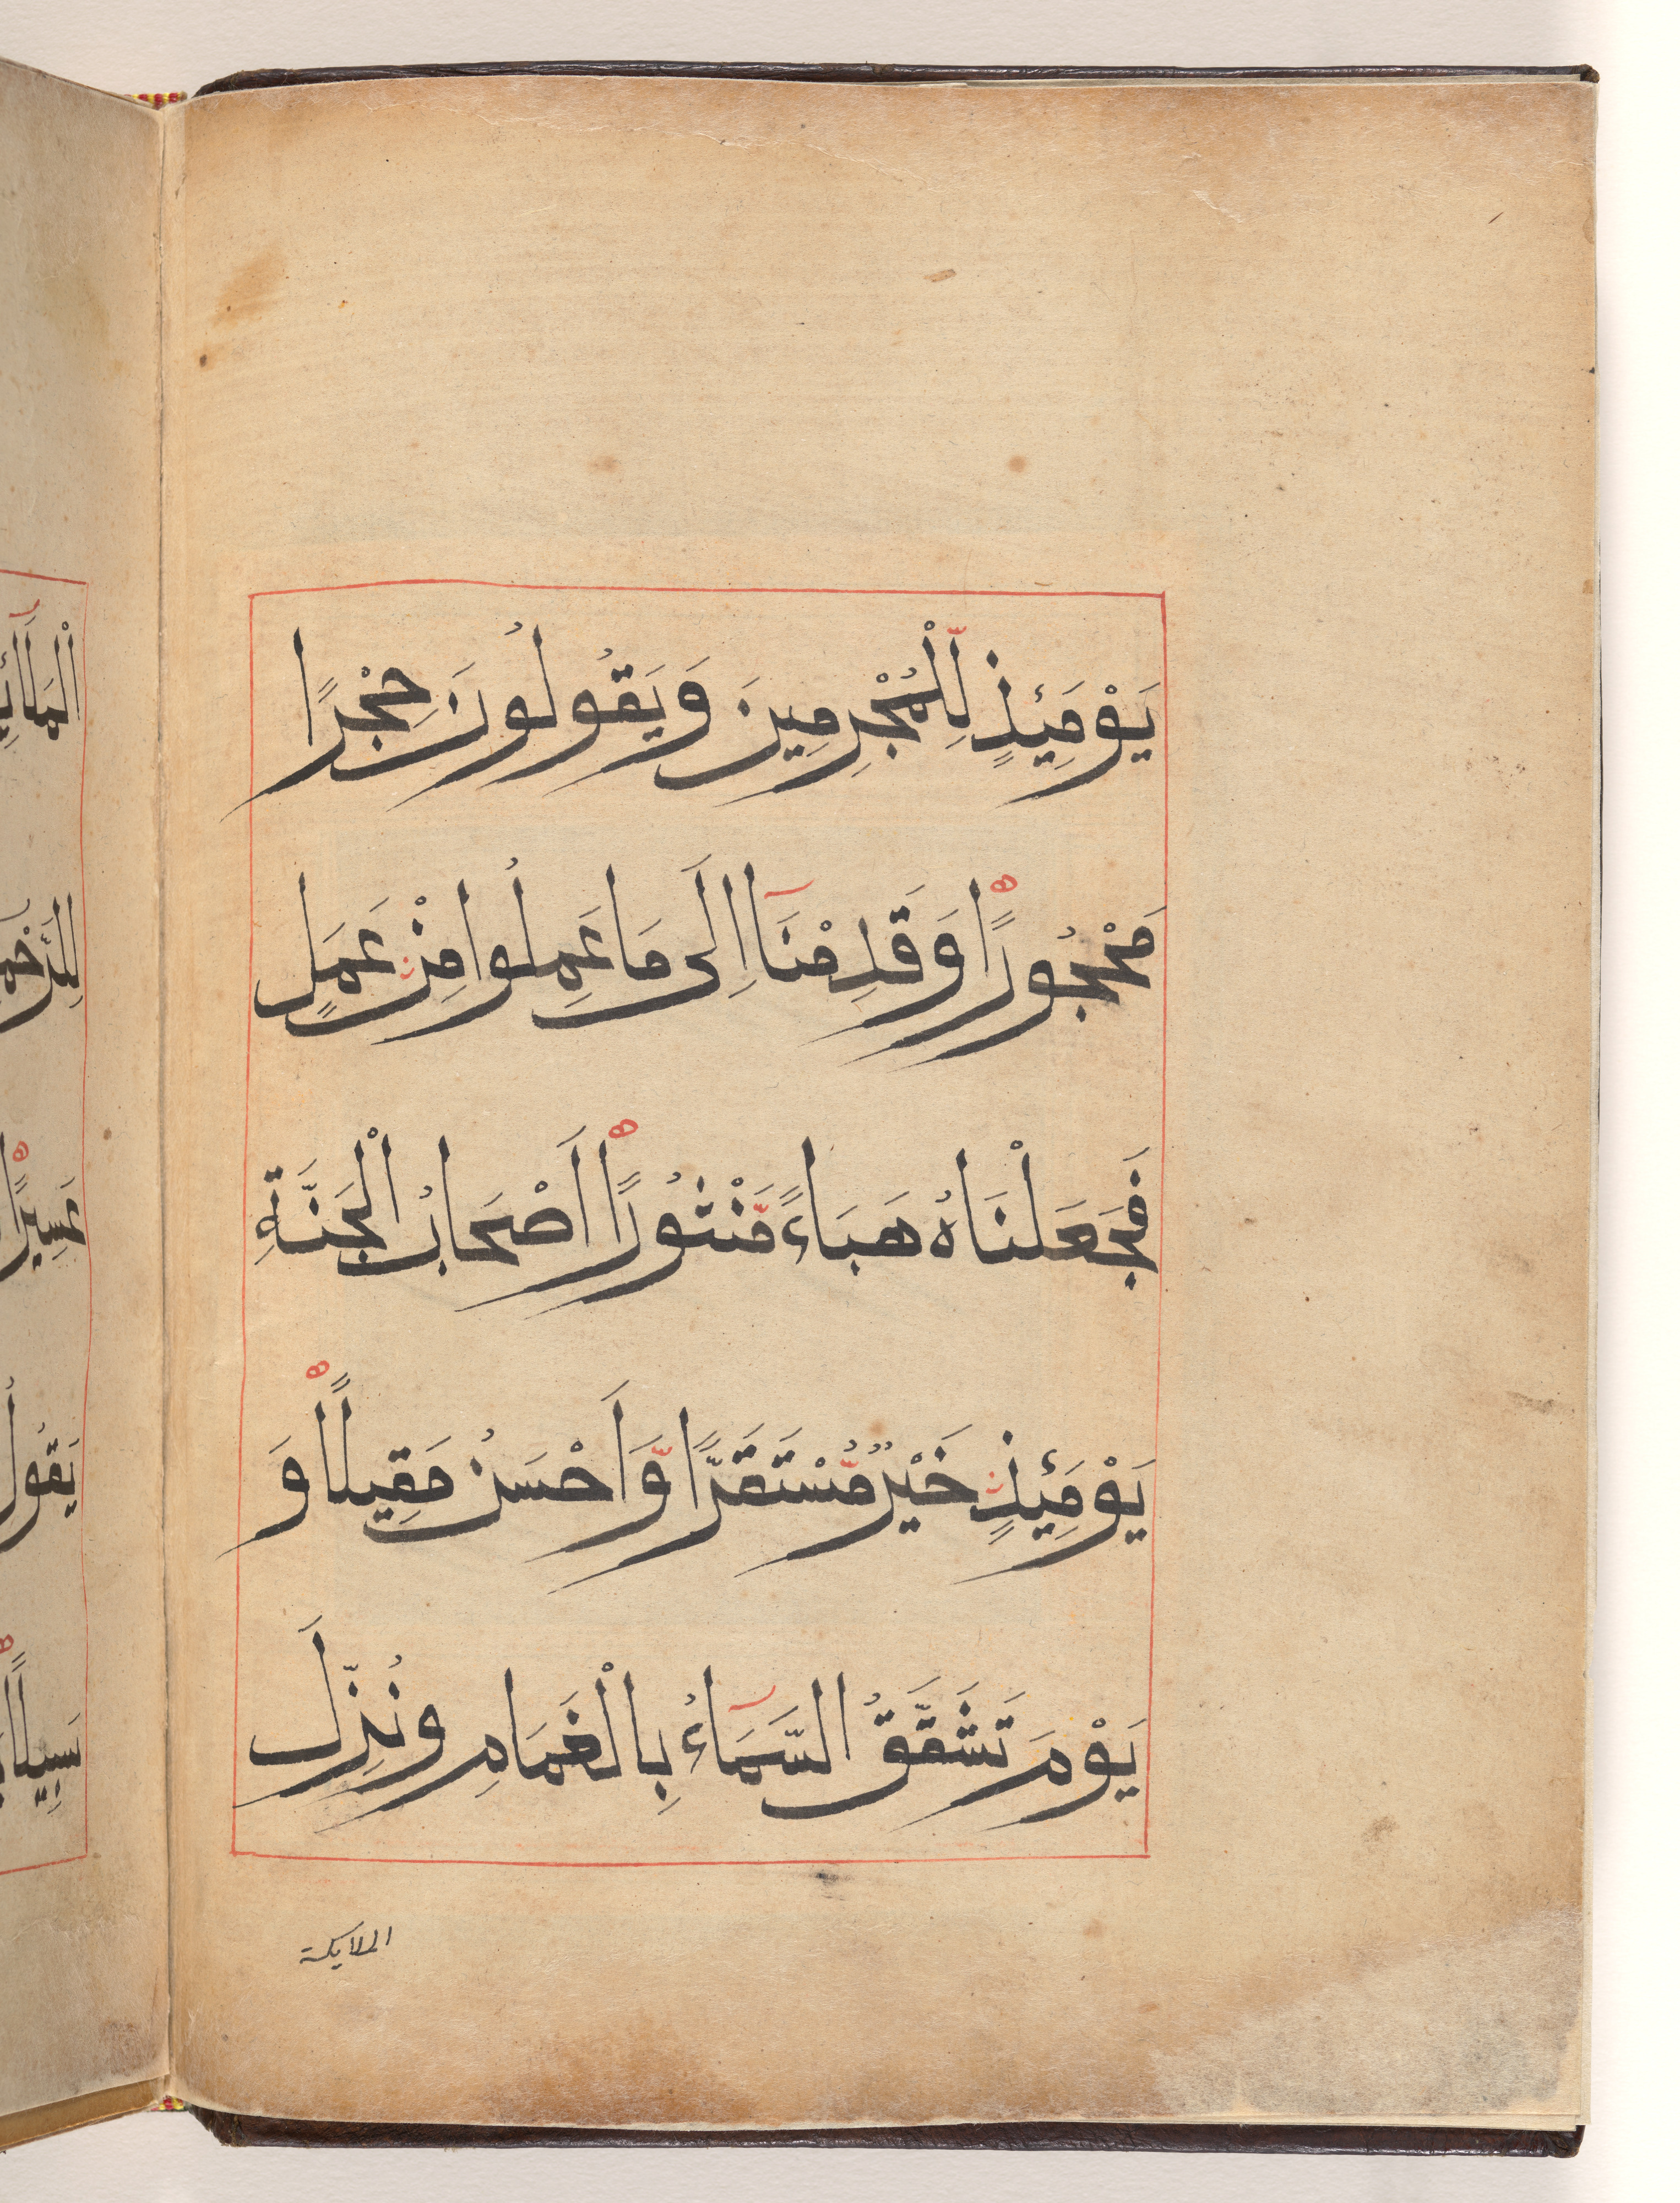 يَوْمَئِذٍ لِّلْمُجْرِمِينَ وَيَقُولُونَ حِجْرًا
مَحْجُورًا وَقَدِمْنَآ اِلَى مَا عَمِلُوا مِنْ عَمَلٍ
فَجَعَلْنَاهُ هَبَاءً مَّنْثُورًا اَصْحَابُ الْجَنَّةِ
يَوْمَئِذٍ خَيْرٌ مُّسْتَقَرًّا وَّاَحْسَنُ مَقِيلًا وَ
يَوْمَ تَشَقَّقُ السَّمَآءُ بِالْغَمَامِ ونُزِّلَ
الملايكة
اْلمَلَآئِ
لِلرَّحْمـ
عَسِيرًا
يَقُولُ
سَبِيلًا